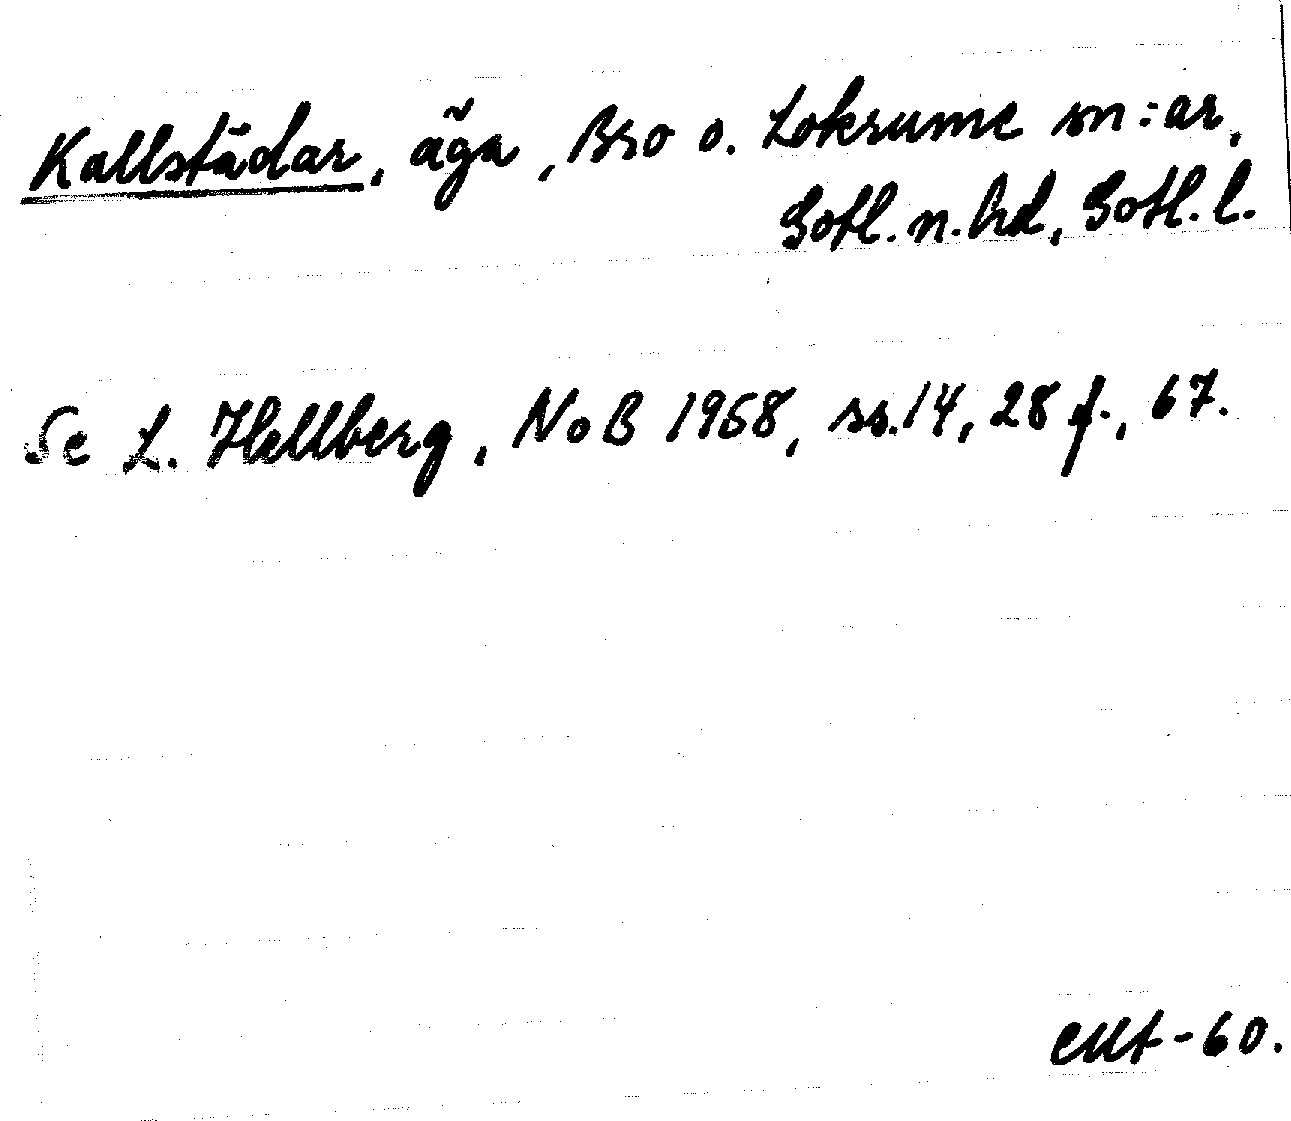 Kallstädar, äga, Bro o. Lokrume sn:ar,
Gotl. n. hd, Gotl. l.
Se L. Hellberg, NoB 1958, ss. 14, 28 f., 67.
-60.